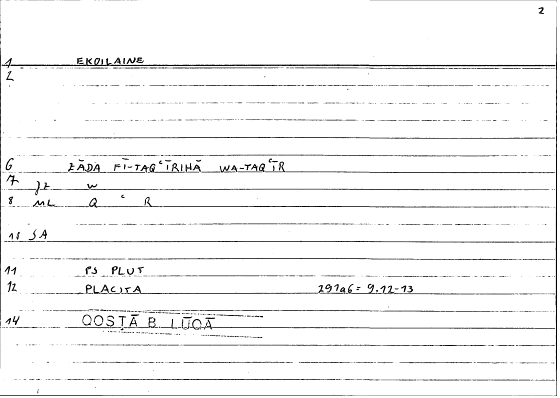 2
1 EKOILAINE
2
6 ZĀDA FĪ-TAQʿĪRIHĀ WA-TAQʿĪR
7 JZ W
8 ML Q ʿ R
10 SA
11 PS PLUT
12 PLACITA 291a6 = 9.12-13
14 QOSṬĀ B. LŪQĀ